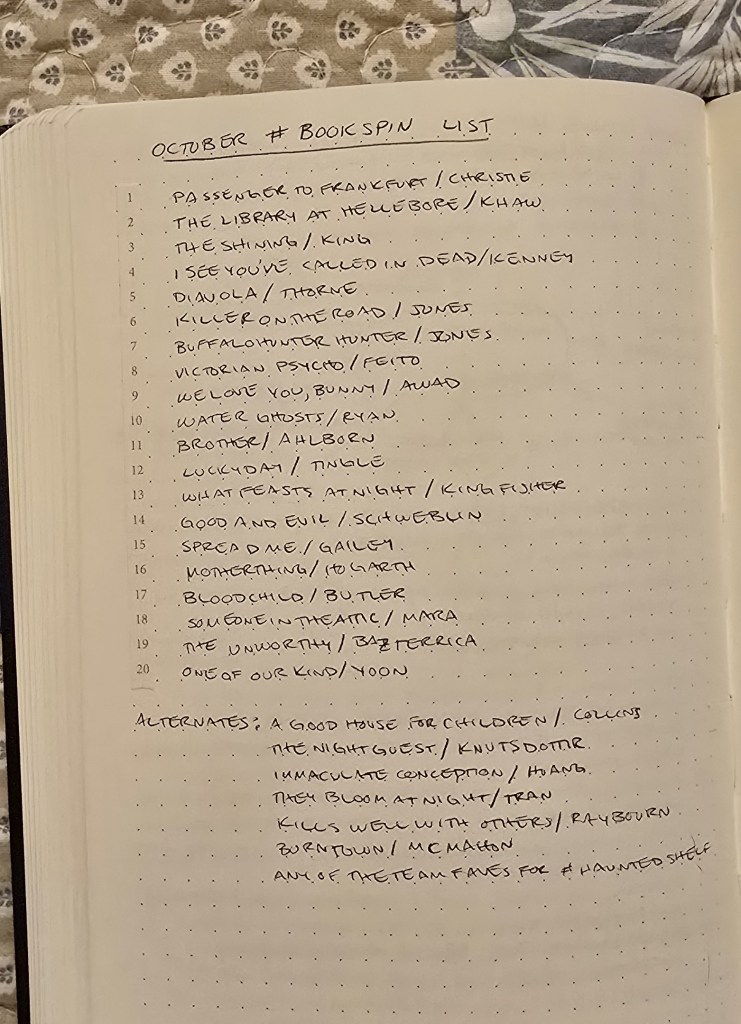 OCTOBER # BOOKSPIN LIST
1 PASSENGER TO FRANKFURT / CHRISTIE
2 THE LIBRARY AT HELLEBORE / KHAW
3 THE SHINING / KING
4 I SEE YOU'VE CALLED IN DEAD / KENNEY
5 DIAVOLA / THORNE
6 KILLER ON THE ROAD / JONES
7 BUFFALO HUNTER HUNTER / JONES
8 VICTORIAN PSYCHO / FEITO
9 WE LOVE YOU, BUNNY / AWAD
10 WATER GHOSTS / RYAN
11 BROTHER / AHLBORN
12 LUCKY DAY / TINGLE
13 WHAT FEASTS AT NIGHT / KINGFISHER
14 GOOD AND EVIL / SCHWEBLIN
15 SPREAD ME / GAILEY
16 MOTHERTHING / HOGARTH
17 BLOODCHILD / BUTLER
18 SOMEONE IN THE ATTIC / MARA
19 THE UNWORTHY / BAZTERRICA
20 ONE OF OUR KIND / YOON
ALTERNATES: A GOOD HOUSE FOR CHILDREN / COLLINS
THE NIGHT GUEST / KNUTSDOTTIR
IMMACULATE CONCEPTION / HUANG
THEY BLOOM AT NIGHT / TRAN
KILLS WELL WITH OTHERS / RAYBOURN
BURNTOWN / MCMAHON
ANY OF THE TEAM FAVES FOR # HAUNTEDSHELF